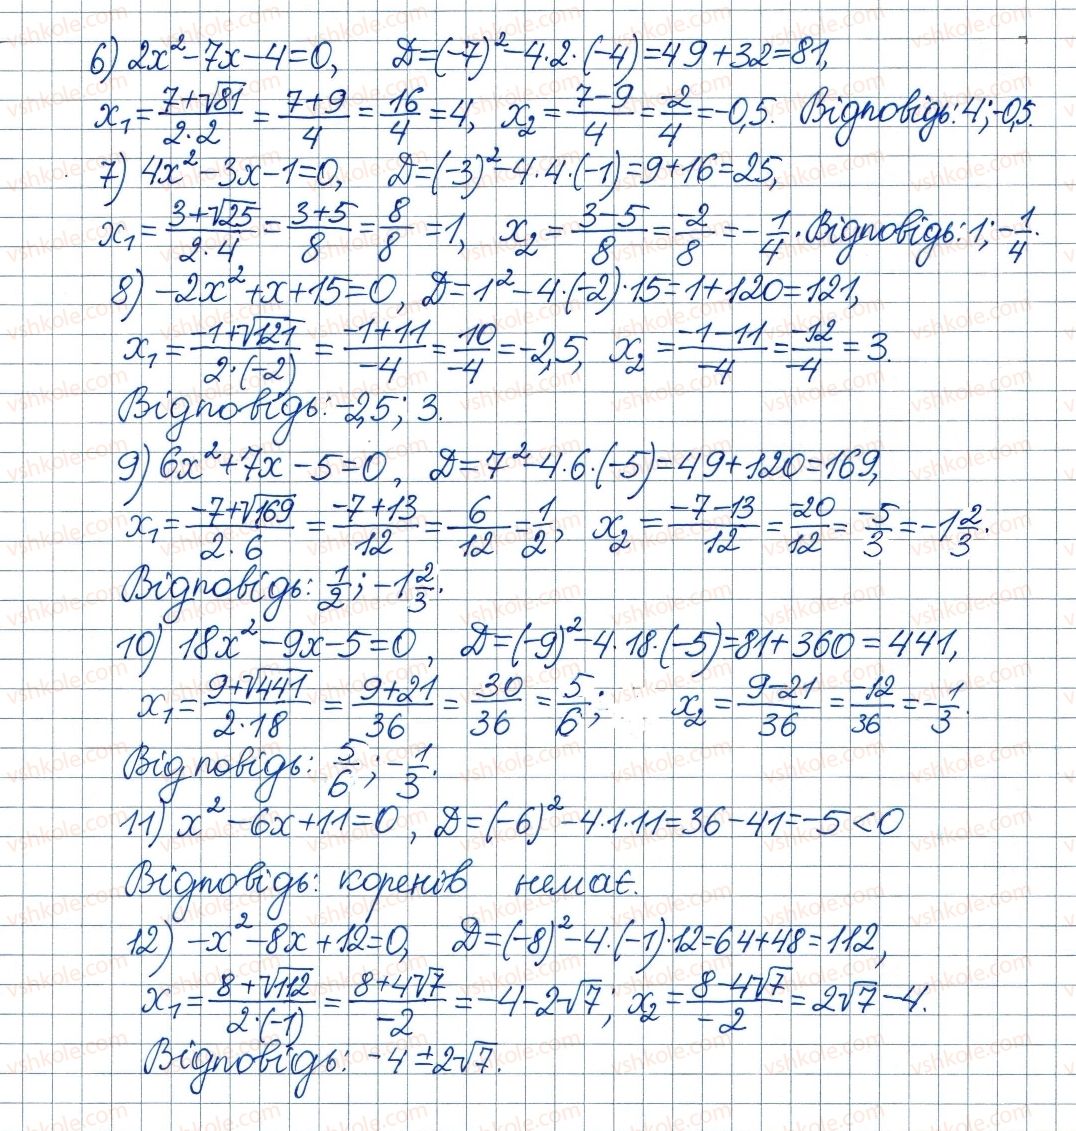 6) 2x² - 7x - 4 = 0, D = (-7)² - 4·2·(-4) = 49 + 32 = 81,
x₁ = (7+√81)/(2·2) = (7+9)/4 = 16/4 = 4, x₂ = (7-9)/4 = -2/4 = -0,5. Відповідь: 4; -0,5.
7) 4x² - 3x - 1 = 0, D = (-3)² - 4·4·(-1) = 9 + 16 = 25,
x₁ = (3+√25)/(2·4) = (3+5)/8 = 8/8 = 1, x₂ = (3-5)/8 = -2/8 = -1/4. Відповідь: 1; -1/4.
8) -2x² + x + 15 = 0, D = 1² - 4·(-2)·15 = 1 + 120 = 121,
x₁ = (-1+√121)/(2·(-2)) = (-1+11)/-4 = 10/-4 = -2,5, x₂ = (-1-11)/-4 = -12/-4 = 3.
Відповідь: -2,5; 3.
9) 6x² + 7x - 5 = 0, D = 7² - 4·6·(-5) = 49 + 120 = 169,
x₁ = (-7+√169)/(2·6) = (-7+13)/12 = 6/12 = 1/2, x₂ = (-7-13)/12 = -20/12 = -5/3 = -1 2/3.
Відповідь: 1/2; -1 2/3.
10) 18x² - 9x - 5 = 0, D = (-9)² - 4·18·(-5) = 81 + 360 = 441,
x₁ = (9+√441)/(2·18) = (9+21)/36 = 30/36 = 5/6; x₂ = (9-21)/36 = -12/36 = -1/3.
Відповідь: 5/6; -1/3.
11) x² - 6x + 11 = 0, D = (-6)² - 4·1·11 = 36 - 41 = -5 < 0
Відповідь: коренів немає.
12) -x² - 8x + 12 = 0, D = (-8)² - 4·(-1)·12 = 64 + 48 = 112,
x₁ = (8+√112)/(2·(-1)) = (8+4√7)/-2 = -4 - 2√7; x₂ = (8-4√7)/-2 = 2√7 - 4.
Відповідь: -4 ± 2√7.